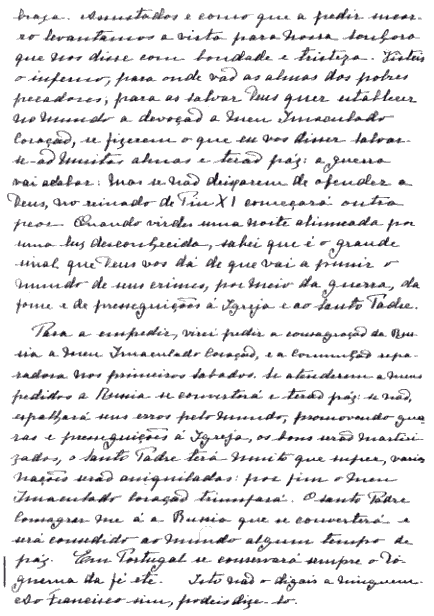 braça. Assustados e como que a pedir socor-
ro levantamos a vista para Nossa Senhora
que nos disse com bondade e tristeza. Vistes
o inferno, para onde vão as almas dos pobres
pecadores; para as salvar Deus quer establecer
no mundo a devoção a Meu Imaculado
Coração, se fizerem o que eu vos disser salvar-
se-ão muitas almas e terão paz: a guerra
vai acabar: Mas se não deixarem de ofender a
Deus, no reinado de Pio XI começará outra
peor. Quando virdes uma noite alumeada por
uma luz desconhecida, sabei que é o grande
sinal que Deus vos dá de que vai a punir o
mundo de seus crimes, por meio da guerra, da
fome e de presseguições á Igreja e ao Santo Padre.
Para a empedir, virei pedir a consagração da Rus
sia a Meu Imaculado Coração, e a Comunhão repa-
radora nos primeiros sabados. Se atenderem a meus
pedidos a Russia se converterá e terão paz: se não,
espalhará seus erros pelo mundo, promovendo guer
ras e presseguições á Igreja, os bons serão martiri-
zados, o Santo Padre terá muito que sufrer, varias
nações serão aniquiladas: por fim o meu
Imaculado Coração triumfará. O Santo Padre
Consagrar me á a Russia que se converterá e
será consedido ao mundo algum tempo de
paz. Em Portugal se conservará sempre o Do
guema da fé etc. Isto não o digais a ninguem.
Ao Francisco sim, podeis dize-lo.